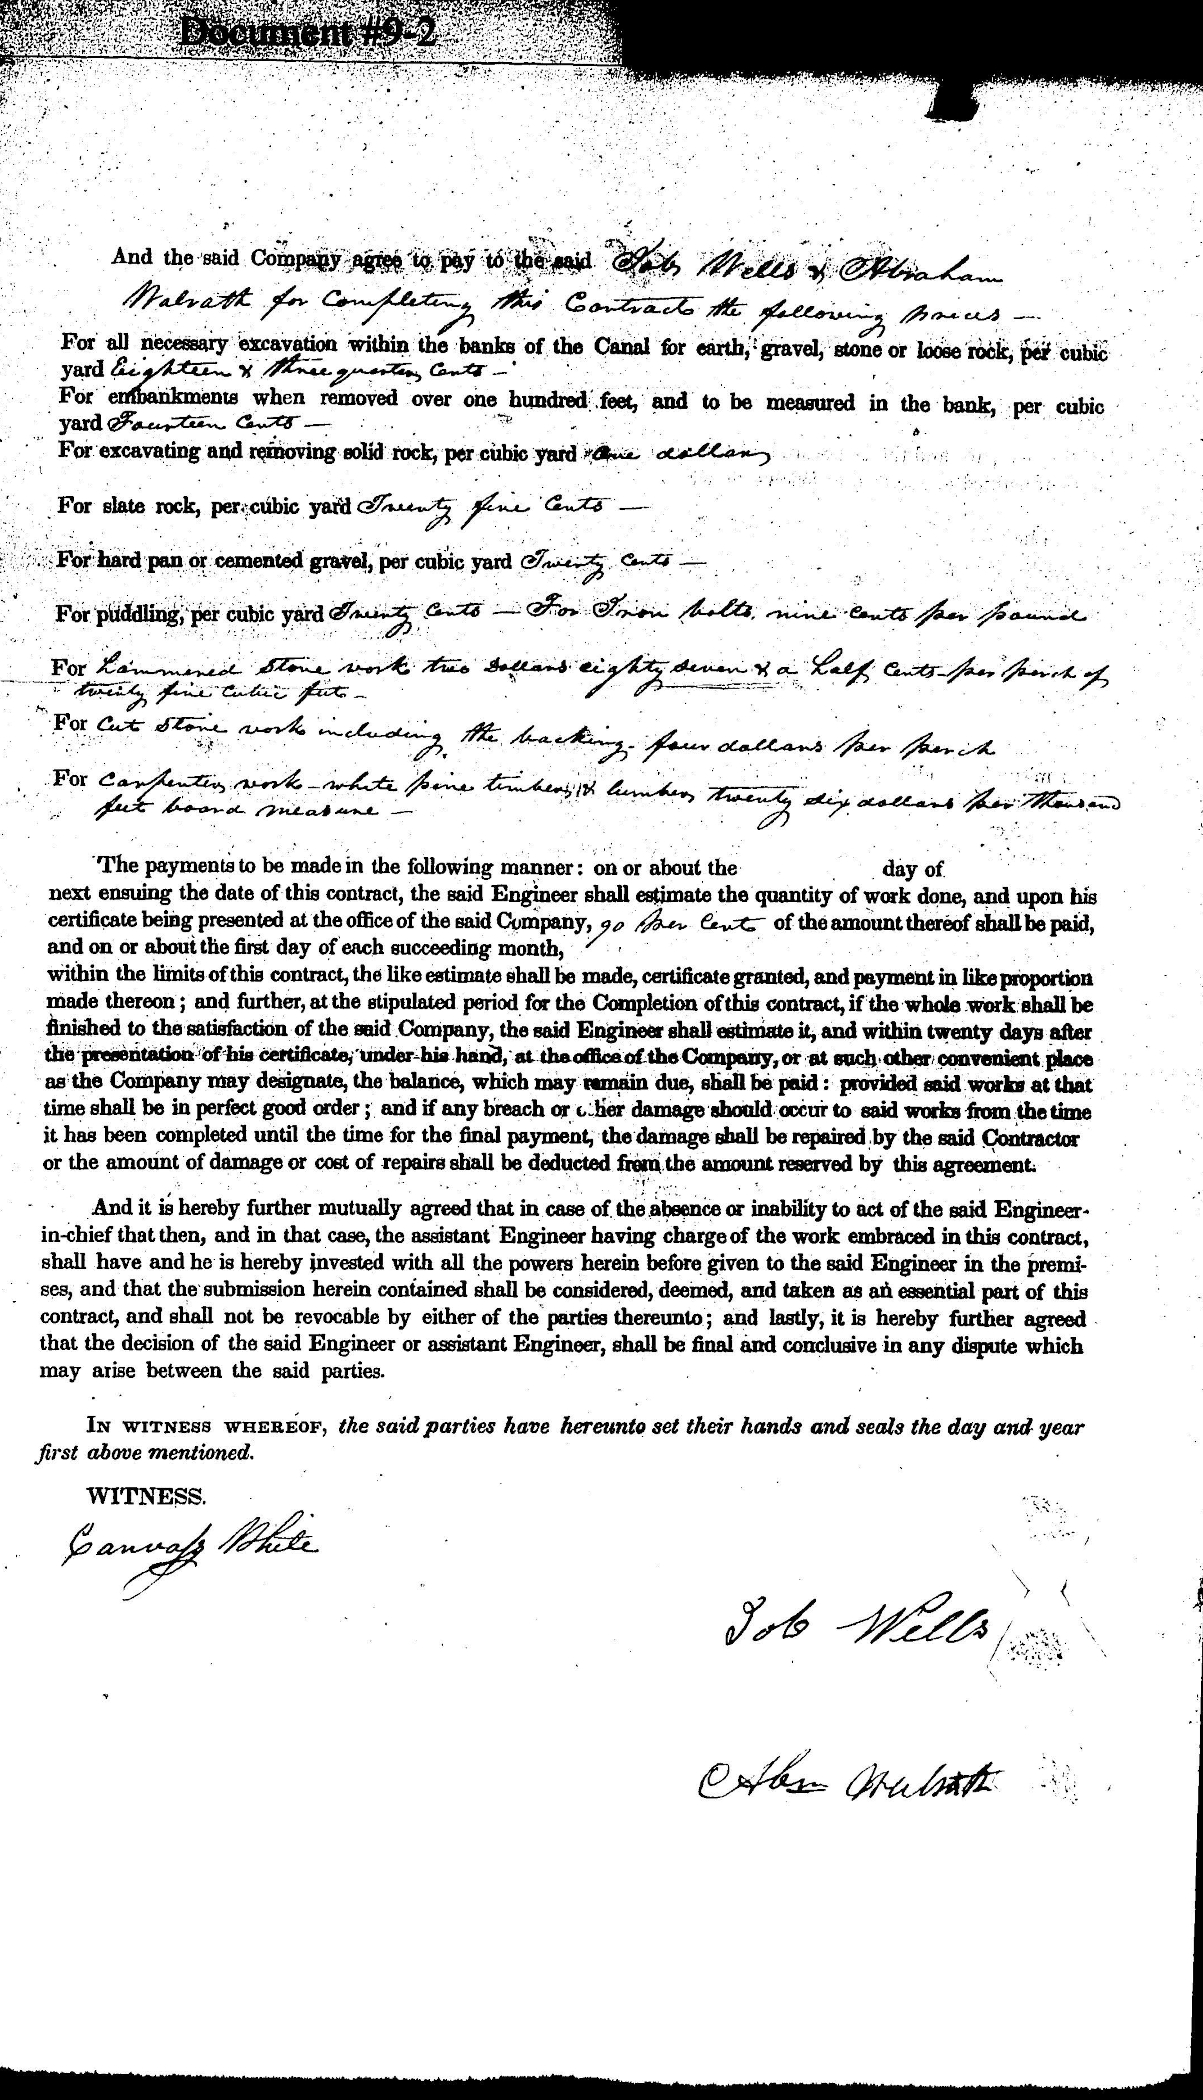 Document #9-2
And the said Company agree to pay to the said Job Wells & Abraham
Walrath for completing this Contract the following prices —
For all necessary excavation within the banks of the Canal for earth, gravel, stone or loose rock, per cubic
yard Eighteen & three quarters Cents —
For embankments when removed over one hundred feet, and to be measured in the bank, per cubic
yard Fourteen Cents —
For excavating and removing solid rock, per cubic yard One dollar
For slate rock, per cubic yard Twenty five Cents —
For hard pan or cemented gravel, per cubic yard Twenty Cents —
For puddling, per cubic yard Twenty Cents — For Iron bolts nine cents per pound
For Hammered Stone work two Dollars eighty seven & a half Cents per perch of
twenty five cubic feet —
For Cut Stone work including the backing - four dollars per perch
For Carpenters work - white pine timber & lumber twenty six dollars per thousand
feet board measure —
The payments to be made in the following manner: on or about the day of
next ensuing the date of this contract, the said Engineer shall estimate the quantity of work done, and upon his
certificate being presented at the office of the said Company, 90 per Cent of the amount thereof shall be paid,
and on or about the first day of each succeeding month,
within the limits of this contract, the like estimate shall be made, certificate granted, and payment in like proportion
made thereon; and further, at the stipulated period for the Completion of this contract, if the whole work shall be
finished to the satisfaction of the said Company, the said Engineer shall estimate it, and within twenty days after
the presentation of his certificate, under his hand, at the office of the Company, or at such other convenient place
as the Company may designate, the balance, which may remain due, shall be paid: provided said works at that
time shall be in perfect good order; and if any breach or other damage should occur to said works from the time
it has been completed until the time for the final payment, the damage shall be repaired by the said Contractor
or the amount of damage or cost of repairs shall be deducted from the amount reserved by this agreement.
And it is hereby further mutually agreed that in case of the absence or inability to act of the said Engineer-
in-chief that then, and in that case, the assistant Engineer having charge of the work embraced in this contract,
shall have and he is hereby invested with all the powers herein before given to the said Engineer in the premi-
ses, and that the submission herein contained shall be considered, deemed, and taken as an essential part of this
contract, and shall not be revocable by either of the parties thereunto; and lastly, it is hereby further agreed
that the decision of the said Engineer or assistant Engineer, shall be final and conclusive in any dispute which
may arise between the said parties.
IN WITNESS WHEREOF, the said parties have hereunto set their hands and seals the day and year
first above mentioned.
WITNESS.
Canvass White
Job Wells
Abm Walrath